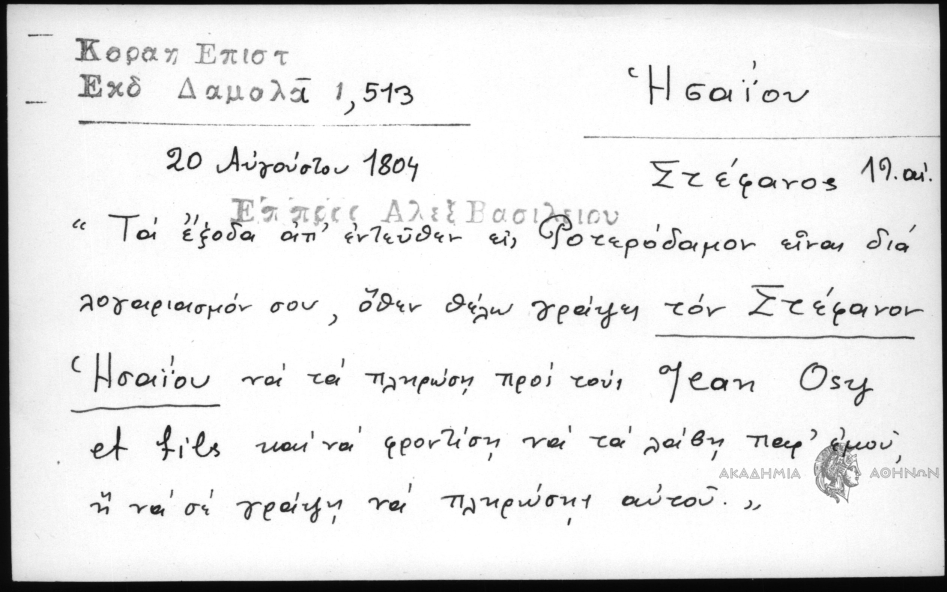 Κοραη Επιστ
Εκδ Δαμαλᾶ 1,513
Ἡσαΐου
20 Αὐγούστου 1804
Στέφανος 19. αἰ.
Επ προς Αλεξ Βασιλειου
“ Τά ἔξοδα ἀπ' ἐντεῦθεν εἰς Ροτερόδαμον εἶναι διά
λογαριασμόν σου, ὅθεν θέλω γράψει τόν Στέφανον
Ἡσαΐου νά τά πληρώσῃ πρός τούς Jean Osy
et fils καί νά φροντίσῃ νά τά λάβῃ παρ' ἐμοῦ,
ἤ νά σέ γράψῃ νά πληρώσῃς αὐτοῦ. „
ΑΚΑΔΗΜΙΑ ΑΘΗΝΩΝ